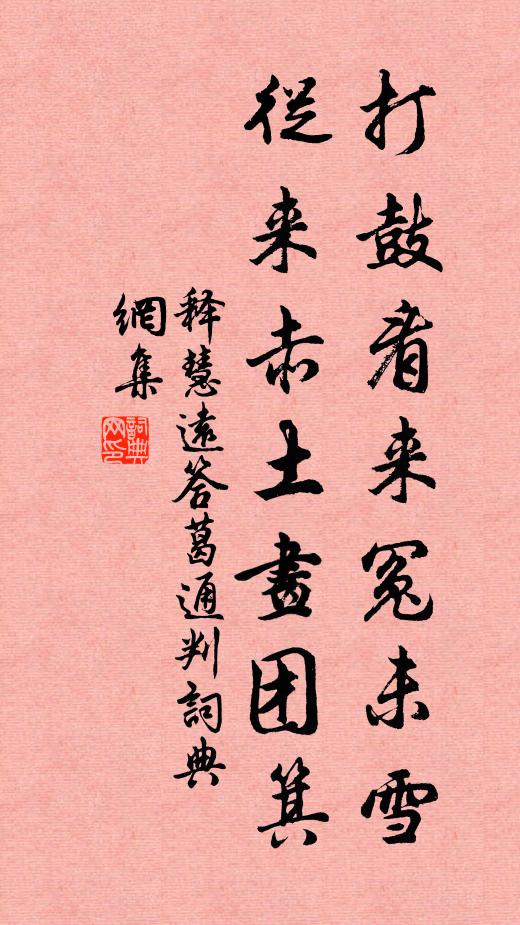 打鼓看来冤未雪
從来赤土畫团箕
释慧遠答葛通判詞典
網集
詞典網印